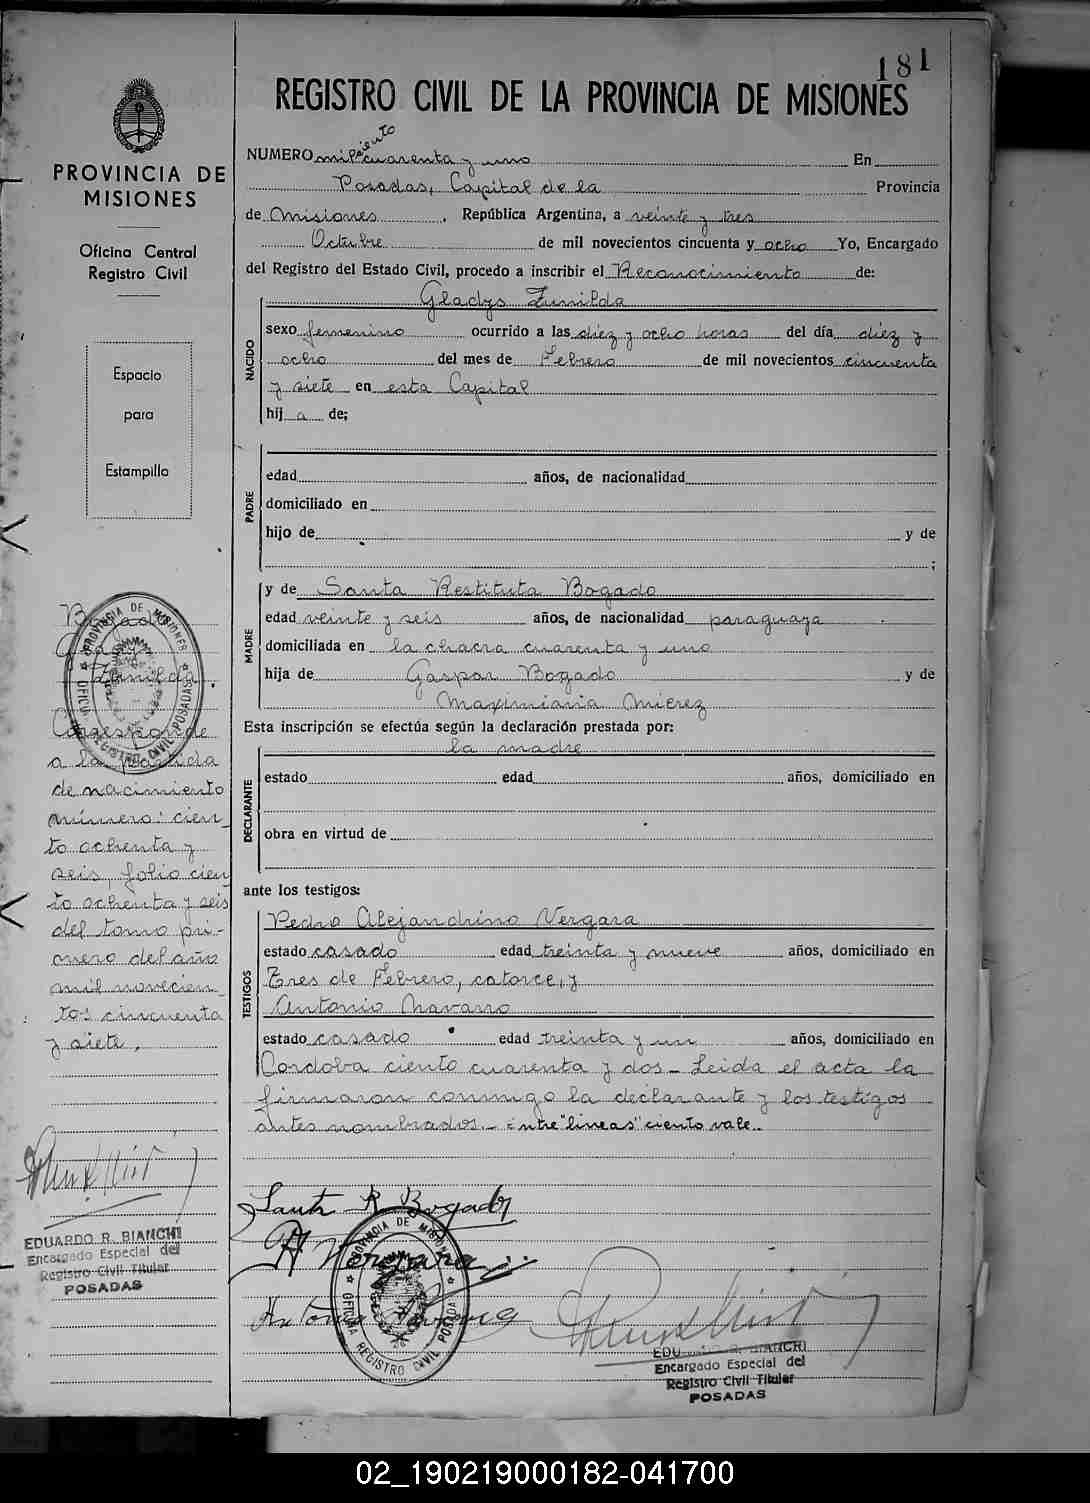 181
REGISTRO CIVIL DE LA PROVINCIA DE MISIONES
PROVINCIA DE
MISIONES
Oficina Central
Registro Civil
Espacio
para
Estampilla
ciento
NUMERO mil cuarenta y uno En
Posadas, Capital de la Provincia
de Misiones, República Argentina, a veinte y tres
Octubre de mil novecientos cincuenta y ocho Yo, Encargado
del Registro del Estado Civil, procedo a inscribir el Reconocimiento de:
NACIDO
Gladys Zunilda
sexo femenino ocurrido a las diez y ocho horas del día diez y
ocho del mes de Febrero de mil novecientos cincuenta
y siete en esta Capital
hij a de;
PADRE
edad años, de nacionalidad
domiciliado en
hijo de y de
;
MADRE
y de Santa Restituta Bogado
edad veinte y seis años, de nacionalidad paraguaya
domiciliada en la chacra cuarenta y uno
hija de Gaspar Bogado y de
Maximiana Mierez
Esta inscripción se efectúa según la declaración prestada por:
DECLARANTE
la madre
estado edad años, domiciliado en
obra en virtud de
ante los testigos:
TESTIGOS
Pedro Alejandrino Vergara
estado casado edad treinta y nueve años, domiciliado en
Tres de Febrero, catorce, y
Antonio Navarro
estado casado edad treinta y un años, domiciliado en
Cordoba ciento cuarenta y dos - Leida el acta la
firmaron conmigo la declarante y los testigos
antes nombrados. - Entre "lineas" ciento vale..
Santa R. Bogado
Vergara
Antonio Navarro
OFICINA REGISTRO CIVIL POSADAS
PROVINCIA DE MISIONES
EDUARDO R. BIANCHI
Encargado Especial del
Registro Civil Titular
POSADAS
Bogado
Zunilda
PROVINCIA DE MISIONES
OFICINA REGISTRO CIVIL POSADAS
Corresponde
a la partida
de nacimiento
número: cien_
to ochenta y
seis, folio cien
to ochenta y seis
del tomo pri-
mero del año
mil novecien_
tos cincuenta
y siete.
EDUARDO R. BIANCHI
Encargado Especial del
Registro Civil Titular
POSADAS
02_190219000182-041700